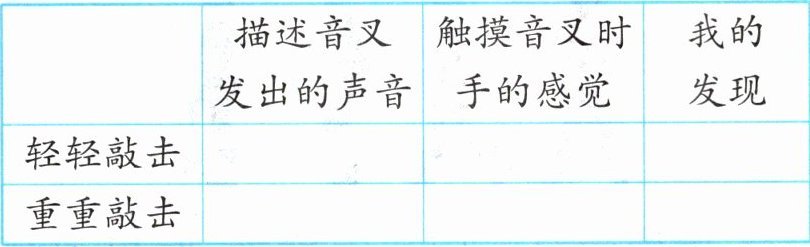 描述音叉 触摸音叉时 我的
发出的声音 手的感觉 发现
轻轻敲击
重重敲击